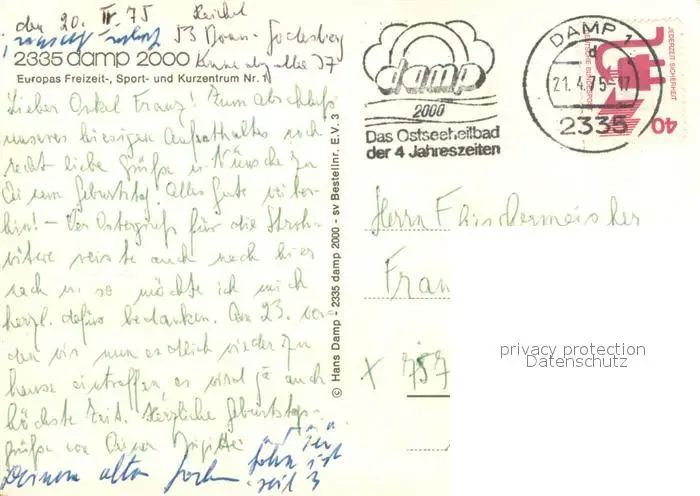 den 20. IV. 75 Reichel
53 Bonn-Godesberg
2335 damp 2000
Europas Freizeit-, Sport- und Kurzentrum Nr. 1
Lieber Onkel Franz! Zum Abschluß
unseres hiesigen Aufenthaltes noch
recht liebe Grüße u. Wünsche zu
Deinem Geburtstag. Alles Gute weiter-
hin! – Der Ostergruß für die Stroh-
witwe reiste auch nach hier
nach u. so möchte ich mich
herzl. dafür bedanken. Am 23. wer-
den wir nun endlich wieder zu
hause eintreffen, es wird ja auch
höchste Zeit. Herzliche Geburtstags-
grüße von Deiner Brigitte
Deinem alten
seit 3
© Hans Damp - 2335 damp 2000 - sv Bestellnr. E.V. 3
damp
2000
Das Ostseeheilbad
der 4 Jahreszeiten
DAMP 1
d
21.4.75-17
2335
JEDERZEIT SICHERHEIT
DEUTSCHE BUNDESPOST
40
Herrn Fleischermeister
Fran
X 757
privacy protection
Datenschutz